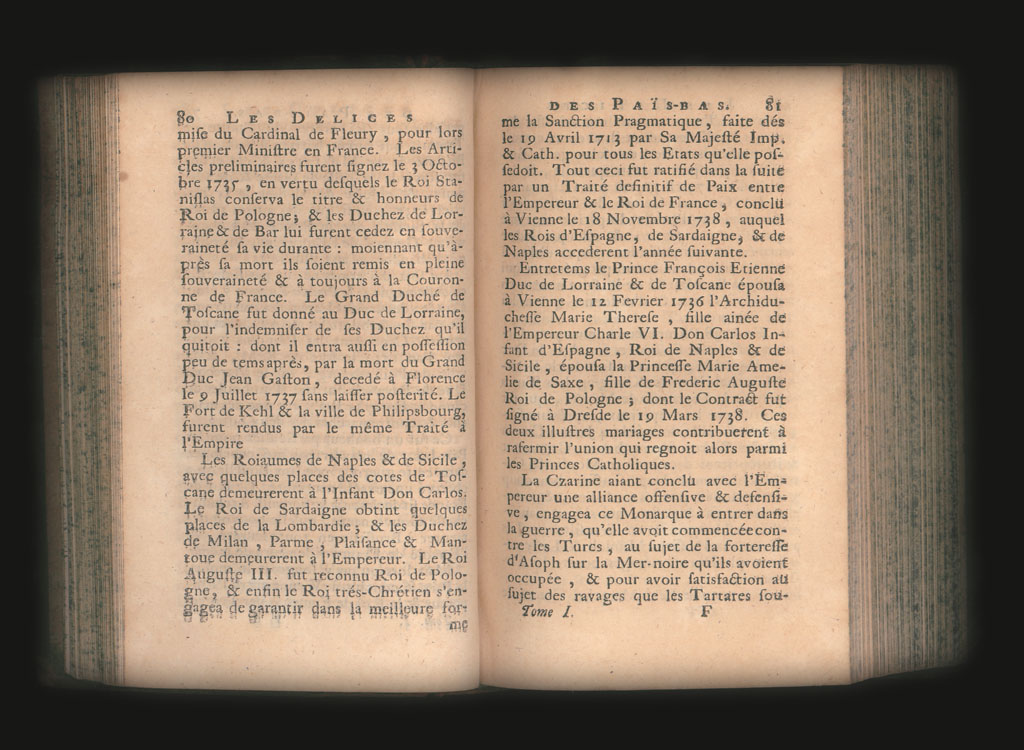 80 LES DELICES
mise du Cardinal de Fleury, pour lors
premier Ministre en France. Les Arti-
cles preliminaires furent signez le 3 Octo-
bre 1735, en vertu desquels le Roi Sta-
nislas conserva le titre & honneurs de
Roi de Pologne; & les Duchez de Lor-
raine & de Bar lui furent cedez en souve-
raineté sa vie durante : moiennant qu'à-
près sa mort ils soient remis en pleine
souveraineté & à toujours à la Couron-
ne de France. Le Grand Duché de
Toscane fut donné au Duc de Lorraine,
pour l'indemniser de ses Duchez qu'il
quitoit : dont il entra aussi en possession
peu de tems après, par la mort du Grand
Duc Jean Gaston, decedé à Florence
le 9 Juillet 1737 sans laisser posterité. Le
Fort de Kehl & la ville de Philipsbourg,
furent rendus par le même Traité à
l'Empire
Les Roiaumes de Naples & de Sicile,
avec quelques places des cotes de Tos-
cane demeurerent à l'Infant Don Carlos.
Le Roi de Sardaigne obtint quelques
places de la Lombardie; & les Duchez
de Milan, Parme, Plaisance & Man-
toue demeurerent à l'Empereur. Le Roi
Auguste III. fut reconnu Roi de Polo-
gne, & enfin le Roi trés-Chrétien s'en-
gagea de garantir dans la meilleure for-
me
DES PAÏS-BAS. 81
me la Sanction Pragmatique, faite dés
le 19 Avril 1713 par Sa Majesté Imp.
& Cath. pour tous les Etats qu'elle pos-
sedoit. Tout ceci fut ratifié dans la suite
par un Traité definitif de Paix entre
l'Empereur & le Roi de France, conclu
à Vienne le 18 Novembre 1738, auquel
les Rois d'Espagne, de Sardaigne, & de
Naples accederent l'année suivante.
Entretems le Prince François Etienne
Duc de Lorraine & de Toscane épousa
à Vienne le 12 Fevrier 1736 l'Archidu-
chesse Marie Therese, fille ainée de
l'Empereur Charle VI. Don Carlos In-
fant d'Espagne, Roi de Naples & de
Sicile, épousa la Princesse Marie Ame-
lie de Saxe, fille de Frederic Auguste
Roi de Pologne; dont le Contract fut
signé à Dresde le 19 Mars 1738. Ces
deux illustres mariages contribuerent à
rafermir l'union qui regnoit alors parmi
les Princes Catholiques.
La Czarine aiant conclu avec l'Em-
pereur une alliance offensive & defensi-
ve, engagea ce Monarque à entrer dans
la guerre, qu'elle avoit commencée con-
tre les Turcs, au sujet de la forteresse
d'Asoph sur la Mer-noire qu'ils avoient
occupée, & pour avoir satisfaction au
sujet des ravages que les Tartares sou-
Tome I. F